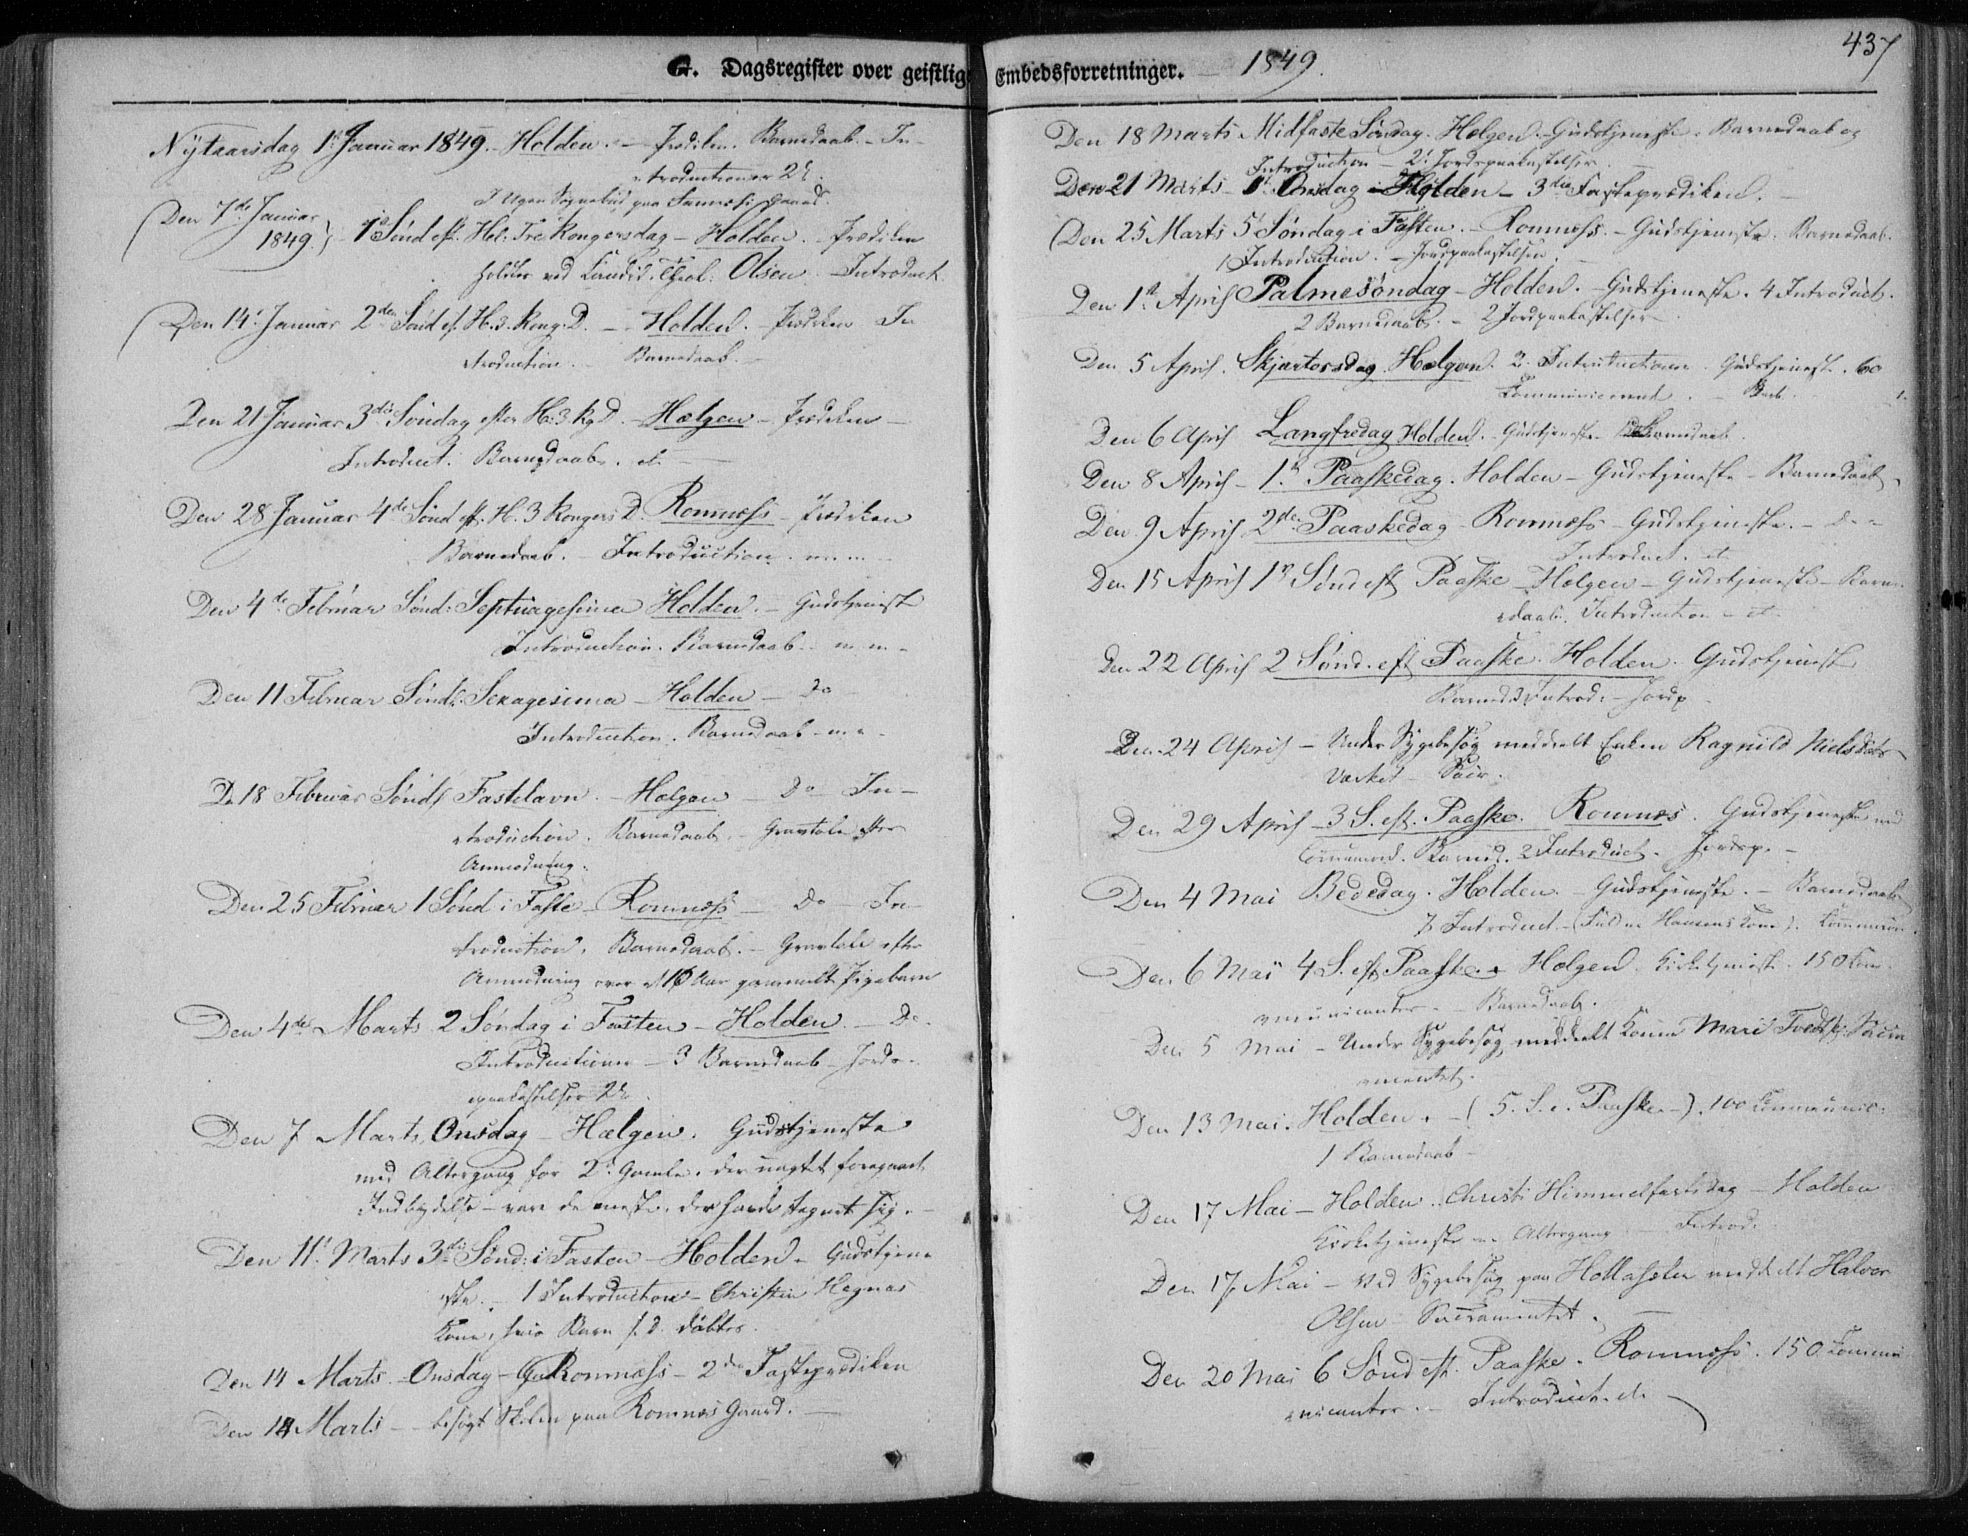 G. Dagsregister over geistlig
Nytaarsdag 1ste Januar 1849. Holden. - Prædiken. Barnedaab. - In-
troductioner 2
Den 7de Januar
1849. 1 Sønd eft. Hel: Tre Kongersdag - Holden. - Prædiken
holdes ved Candid. Theol. Olsen. Introduct.
Den 14. Januar 2den Sønd ef. H. 3. Kong. D. - Holden. Prædiken In
troduction. Barnedaab. -
Den 21 Januar 3die Søndag efter H. 3 Kg D. - Hælgen - Prædiken -
Introduct. Barnedaab.
Den 28 Januar 4de Sønd eft. H. 3 Kongers D. Romnæss - Prædiken
Barnedaab. - Introduction
Den 4de Februar Sønd: Septuagesima Holden. - Gudstjeneste
Introduction. Barnedaab
Den 11 Februar Sønd: Sexagesima - Holden - Do
Introduction. Barnedaab
D. 18 Februar Sønds Fastelavn. - Hælgen - Do - In-
troduction. Barnedaab. - Gravtale efter
Anmodning.
Den 25 Februar 1 Sønd i Faste - Romnæss - Do - In-
troduction, Barnedaab. - Gravtale efter
Anmodning over et 16 Aar gammelt Pigebarn
Den 4de Marts 2 Søndag i Fasten - Holden. - Do.
Introductioner - 3 Barnedaab - Jords-
paakastelser 2
Den 7 Marts. Onsdag - Hælgen. Gudstjeneste
med Altergang for 2 Gamle. der uagtet foregaaet
Indbydelse - vare de eneste, der havde tegnet sig. -
Den 11. Marts 3die Sønd: i Fasten - Holden. Gudstjene-
ste. - 1 Introduction - Christen Hegnas
Kone, hvis Barn f. d. døbtes.
Den 14 Marts. Onsdag - Romnæss - 2den Fasteprædiken
Den 14 Marts - besøgt Skolen paa Romnæs Gaard. -
Embedsforretninger. 1849.
437
Den 18 Marts Midfaste Søndag. Hælgen. Gudstjeneste. Barnedaab og
Introduction - 2 Jordspaakastelser.
Den 21 Marts Onsdag - Holden - 3die Fasteprædiken. -
Den 25 Marts 5 Søndag i Fasten. - Romnæss. - Gudstjeneste. Barnedaab.
1 Introduction. - Jordpaakastelser.
Den 1ste April Palmesøndag - Holden. - Gudstjeneste. 4 Introduct.
2 Barnedaab. - 2 Jordpaakastelser
Den 5 April. Skjærtorsdag. Hælgen. 2. Introductioner. Gudstjeneste. 60
Communicerende.
Den 6 April Langfredag Holden. - Gudstjeneste. Barnedaab.
Den 8 April - 1ste Paaskedag. Holden - Gudstjeneste - Barnedaab.
Den 9 April 2den Paaskedag - Romnæss - Gudstjeneste.
Introduct.
Den 15 April 1ste Sønd eft Paaske - Hælgen - Gudstjeneste - Barne-
daab. Introduction
Den 22 April 2 Sønd. eft Paaske. Holden. Gudstjeneste
Barned. 3 Introd: - Jordp.
Den 24 April - Under Sygebesøg meddelt Enken Ragnild Nielsdatter
Den 29 April - 3 S. eft. Paaske. Romnæs. Gudstjeneste med
Commun. Barned. 2 Introduct. Jordsp. -
Den 4 Mai Bededag. Holden. - Gudstjeneste. - Barnedaab
7 Introduct. - Commun.
Den 6 Mai 4 S. eft Paaske. Hælgen. Kirketjeneste. 150 Com-
municanter. - Barnedaab.
Den 5 Mai - Under Sygebesøg meddeelt Konen Mari Tvedt
Den 13 Mai. Holden. - ( 5. S. e. Paaske. - ). 100 Communic:
1 Barnedaab -
Den 17 Mai - Holden. Christi Himmelfartsdag - Holden
Kirketjeneste - Altergang - Introd.
Den 17 Mai - Ved Sygebesøg paa meddelt Halvor
Olsen Sacramentet.
Den 20 Mai 6 Sønd eft. Paaske. Romnæss. 150 Commu-
nicanter. - Introduct.